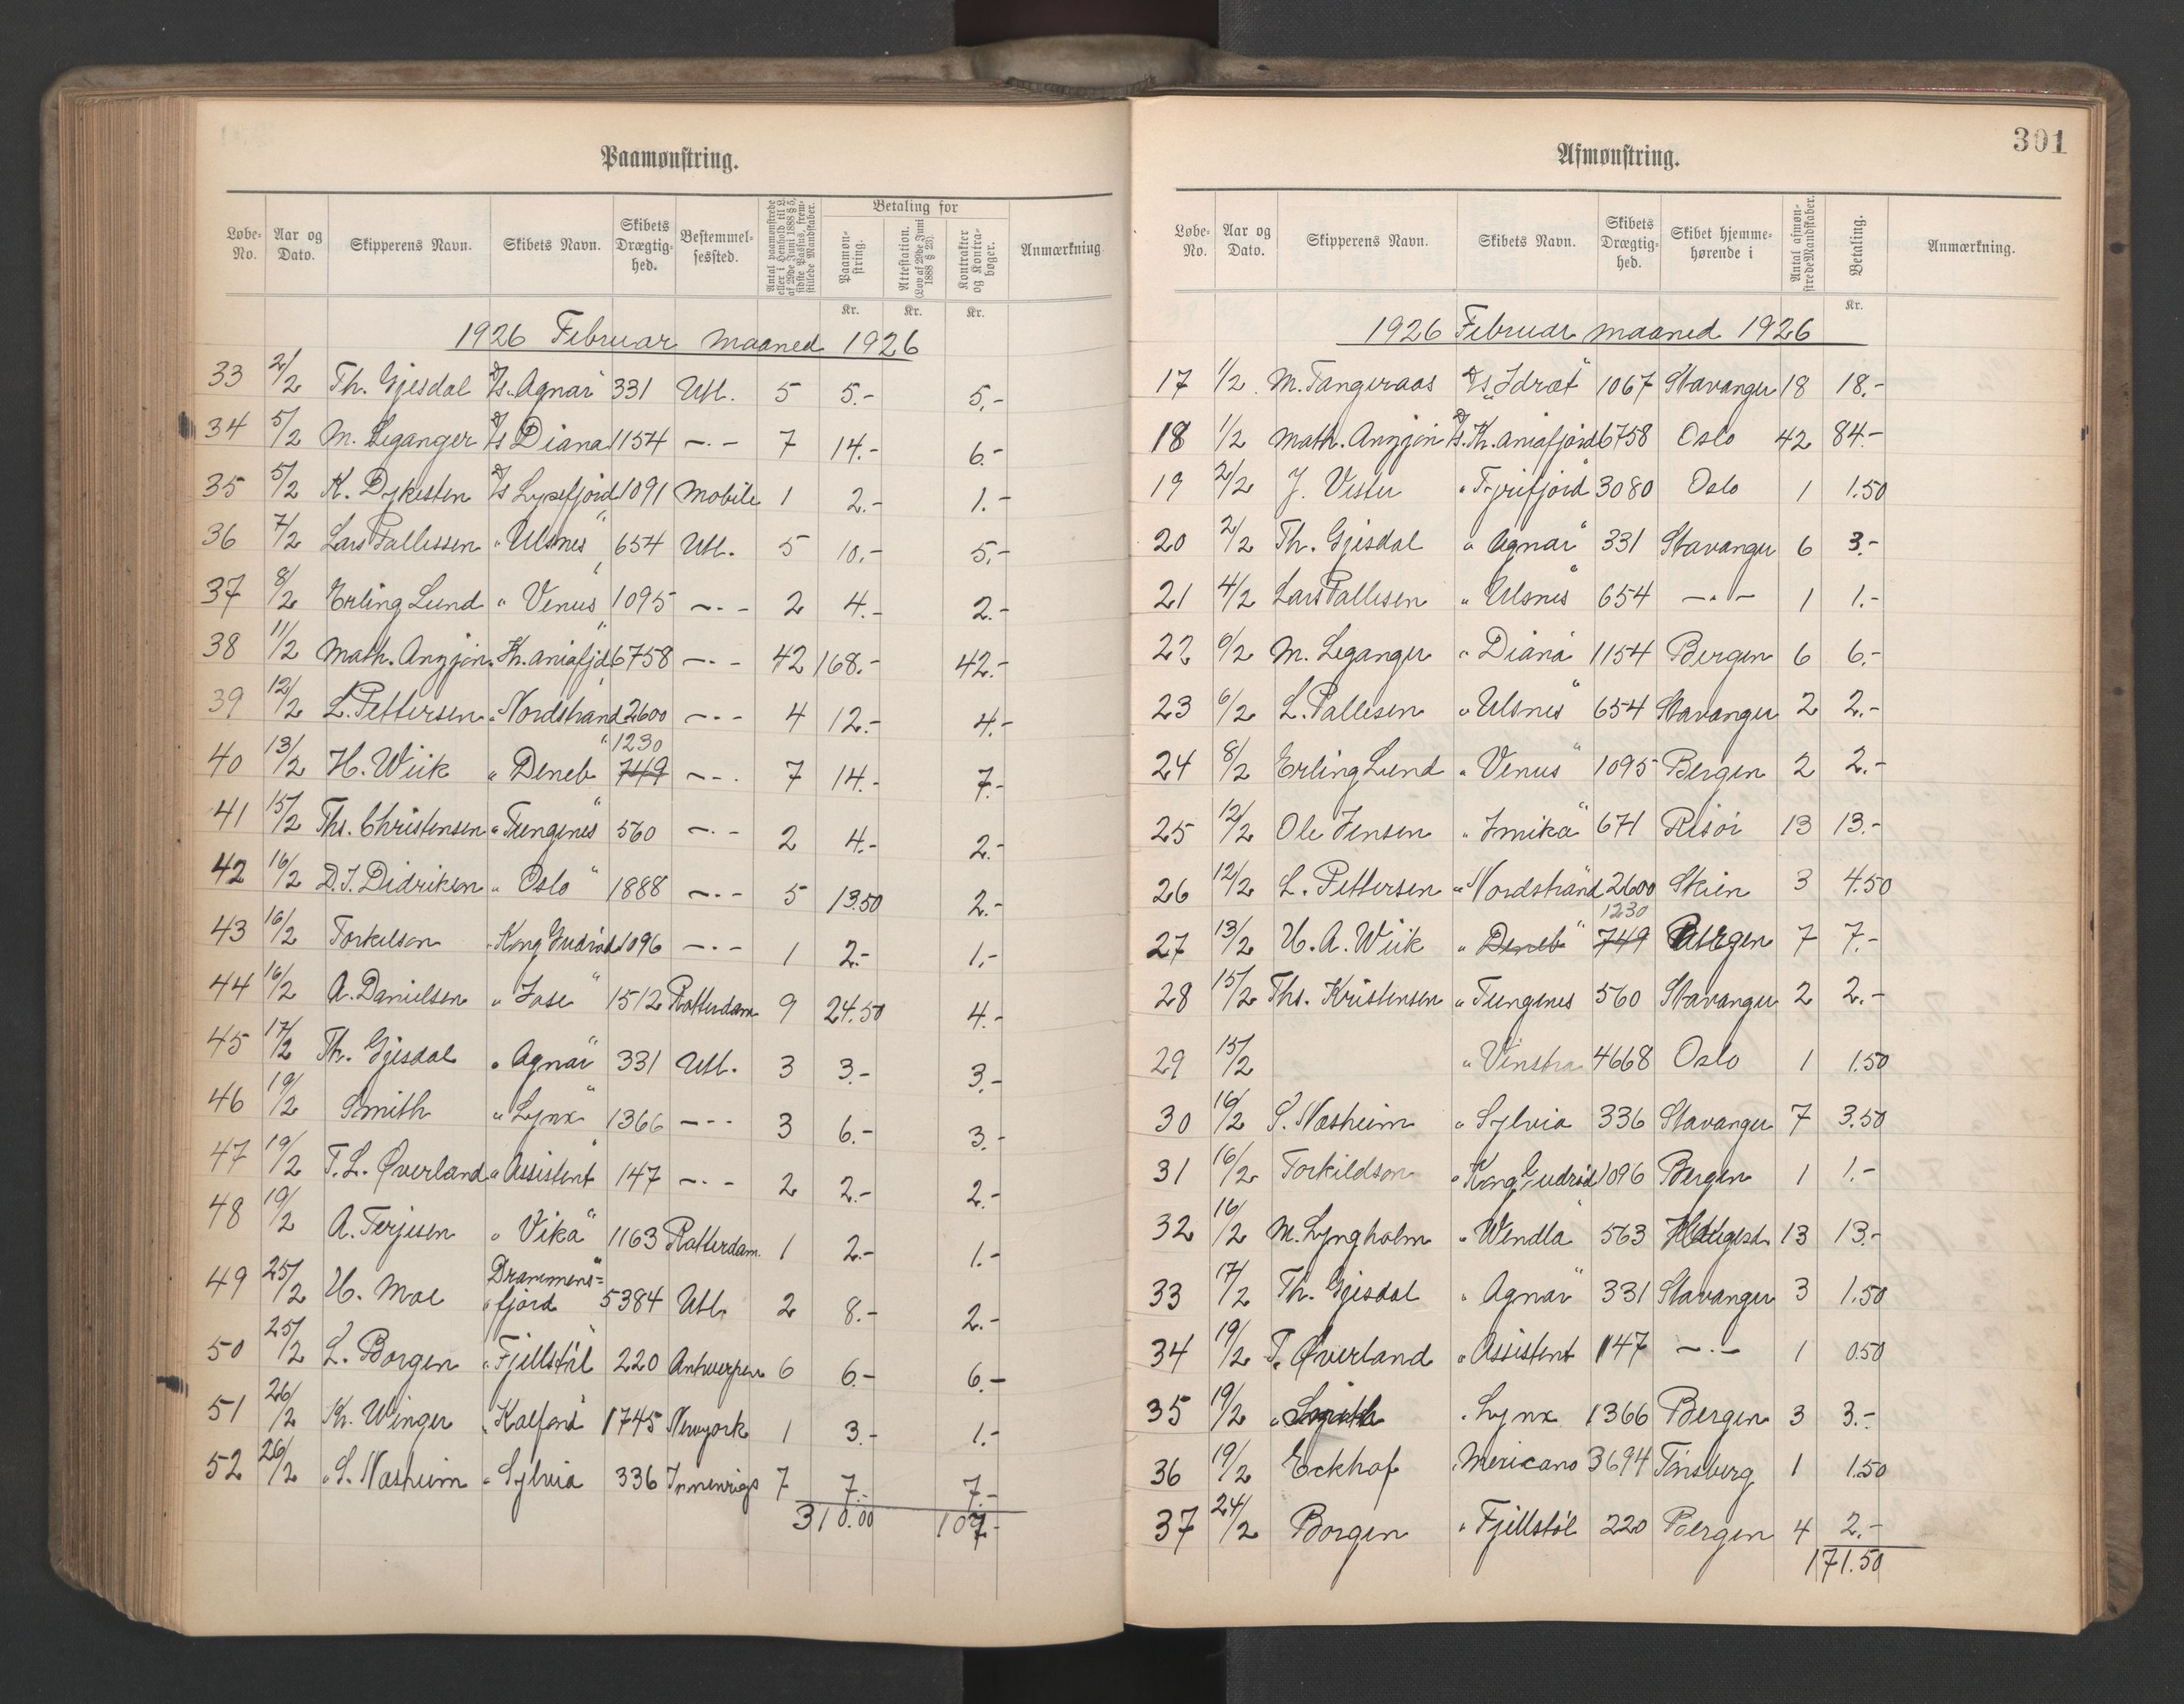 Paamønstring.
Løbe-No. Aar og Dato. Skipperens Navn. Skibets Navn. Skibets Drægtig-hed. Bestemmel-sessted. Antal paamønstrede eller i Henhold til L. af 29de Juni 1888 § 5, sidste Passus, frem-stillede Mandskaber. Betaling for Paamøn-string. Attestation. (Lov af 29de Juni 1888 § 25). Kontrakter og Kontra-bøger. Anmærkning
Kr. Kr. Kr.
1926 Februar maaned 1926
33 2/2 Th. Gjesdal D/s "Agnar" 331 Utl. 5 5.- 5.-
34 5/2 M. Leganger D/s Diana 1154 -.- 7 14.- 6.-
35 5/2 K. Dykesten D/s Lysefjord 1091 Mobile 1 2.- 1.-
36 7/2 Lars Pallessen " Ulsnes" 654 Utl. 5 10.- 5.-
37 8/2 Erling Lund " Venus 1095 -.- 2 4.- 2.-
38 11/2 Math. Anzjøn " Kr.aniafjd 6758 -.- 42 168.- 42.-
39 12/2 L. Pettersen " Nordstrand 2600 -.- 4 12.- 4.-
1230
40 13/2 H. Wiik " Deneb" 749 -.- 7 14.- 7.-
41 15/2 Ths. Christensen " Tungenes" 560 -.- 2 4.- 2.-
42 16/2 D.J. Didriksen " Oslo" 1888 -.- 5 13.50 2.-
43 16/2 Torkilsen " Kong Gudrød 1096 -.- 1 2.- 1.-
44 16/2 A. Danielsen " Jose" 1512 Rotterdam 9 24.50 4.-
45 17/2 Th. Gjesdal " Agnar" 331 Utl. 3 3.- 3.-
46 19/2 Smith " Lynx" 1366 -.- 3 6.- 3.-
47 19/2 T.L. Øverland " Assistent 147 -.- 2 2.- 2.-
48 19/2 A. Terjesen " Vika" 1163 Rotterdam 1 2.- 1.-
Drammens=
49 25/2 H. Moe " fjord 5384 Utl. 2 8.- 2.-
50 25/2 L. Borgen " Fjellstøl 220 Antwerpen 6 6.- 6.-
51 26/2 Kr. Winger " Kalfond 1745 Newyork 1 3.- 1.-
52 26/2 S. Nasheim " Sylvia 336 Innenrigs 7 7.- 7.-
310.00 107.-
301
Afmønstring.
Løbe-No. Aar og Dato. Skipperens Navn. Skibets Navn. Skibets Drægtig-hed. Skibet hjemme-hørende i Antal afmøn-strede Mandskaber. Betaling. Anmærkning.
Kr.
1926 Februar maaned 1926
17 1/2 M. Tangeraas D/s "Idræt" 1067 Stavanger 18 18.-
18 1/2 Math. Anzjøn D/s Kr.aniafjord 6758 Oslo 42 84.-
19 2/2 J. Vister " Tyrifjord" 3080 Oslo 1 1.50
20 2/2 Th. Gjesdal " Agnar" 331 Stavanger 6 3.-
21 4/2 Lars Pallesen " Ulsnes" 654 -.- 1 1.-
22 6/2 M. Leganger " Diana 1154 Bergen 6 6.-
23 6/2 L. Pallesen " Ulsnes" 654 Stavanger 2 2.-
24 8/2 Erling Lund " Venus" 1095 Bergen 2 2.-
25 12/2 Ole Jensen " Imika" 671 Risør 13 13.-
26 12/2 L. Pettersen " Nordstrand 2600 Skien 3 4.50
1230
27 13/2 H.A. Wiik " Deneb" 749 Bergen 7 7.-
28 15/2 Ths. Kristensen " Tungenes 560 Stavanger 2 2.-
29 15/2 " Vinstra 4668 Oslo 1 1.50
30 16/2 S. Nasheim " Sylvia 336 Stavanger 7 3.50
31 16/2 Torkildson " Kong Gudrød 1096 Bergen 1 1.-
32 16/2 M. Lyngholm " Wendla" 563 Haugesd. 13 13.-
33 17/2 Th. Gjesdal " Agnar" 331 Stavanger 3 1.50
34 19/2 T. Øverland " Assistent 147 -.- 1 0.50
35 19/2 Smith " Lynx 1366 Bergen 3 3.-
36 19/2 Eckhof " Mexicano 3694 Tønsberg 1 1.50
37 24/2 Borgen " Fjellstøl 220 Bergen 4 2.-
171.50